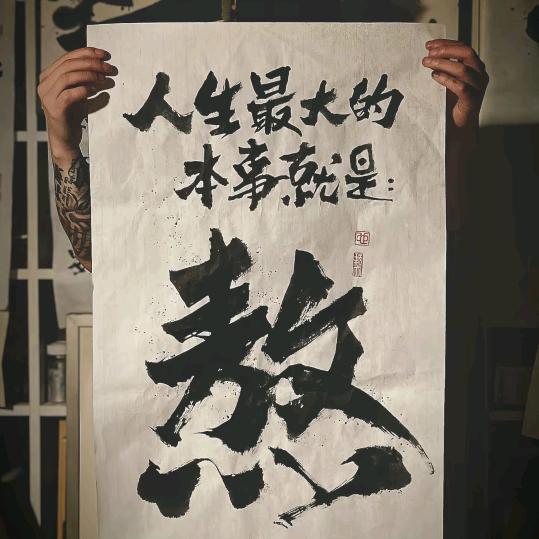 人生最大的
本事就是:
熬